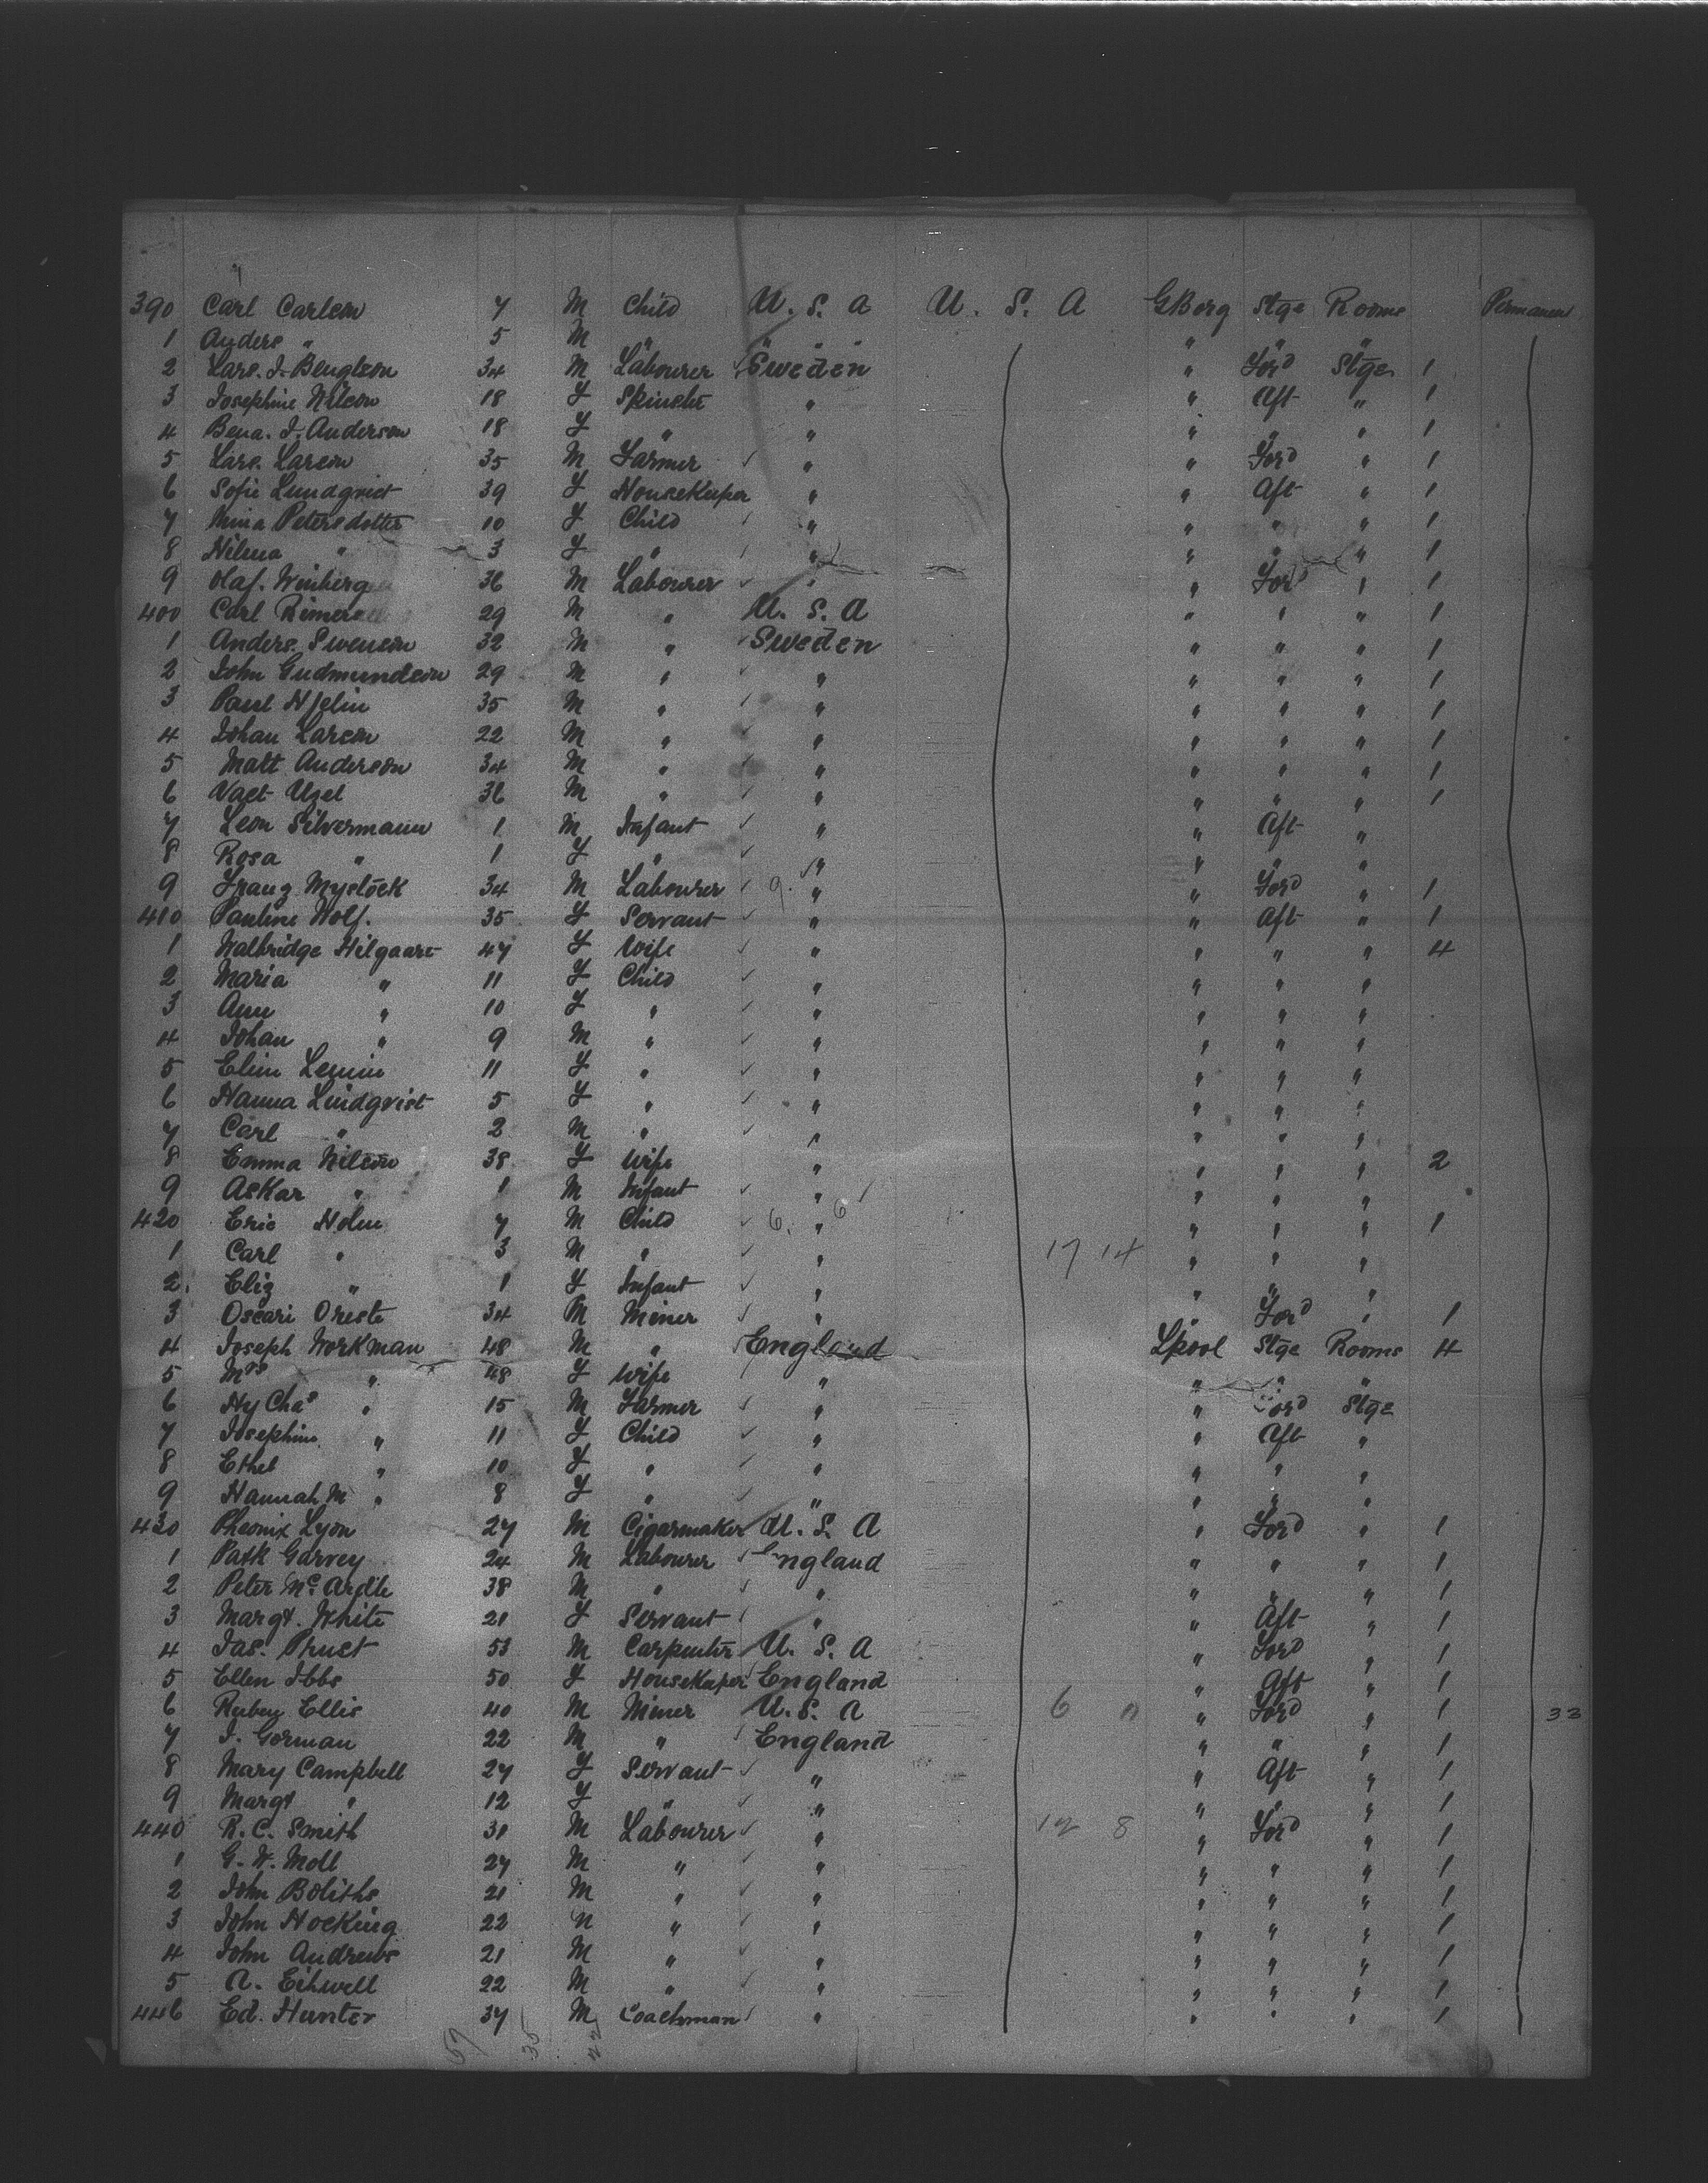 390 Carl Carlson 7 M Child U. S. A U. S. A GBerg Stge Rooms Permanent
1 Anders " 5 M " " " " " " "
2 Lars. J. Bengtson 34 M Labourer Sweden " Ford Stge 1
3 Josephine Nilson 18 F Spinster " " Aft " 1
4 Bena. J. Anderson 18 F " " " " " 1
5 Lars. Larson 35 M Farmer " " Ford " 1
6 Sofie Lundqvist 39 F HouseKeeper " " Aft " 1
7 Nina Petersdotter 10 F Child " " " " 1
8 Hilma " 3 F " " " " " 1
9 Olaf. Winberg 36 M Labourer " " Ford " 1
400 Carl Rimer 29 M " U. S. A " " " 1
1 Anders. Swenson 32 M " Sweden " " " 1
2 John Gudmundson 29 M " " " " " 1
3 Paul Hjelin 35 M " " " " " 1
4 Johan Larson 22 M " " " " " 1
5 Matt Anderson 34 M " " " " " 1
6 36 M " " " " " 1
7 Leon Silvermann 1 M Infant " " Aft "
8 Rosa " 1 F " " " " "
9 Franz Myslöck 34 M Labourer 9. " " Ford " 1
410 Pauline Wolf. 35 F Servant " " Aft " 1
1 Walbridge Hilgaart 47 F Wife " " " " 4
2 Maria " 11 F Child " " " "
3 Ann " 10 F " " " " "
4 Johan " 9 M " " " " "
5 Elin 11 F " " " " "
6 Hanna Lindqvist 5 F " " " " "
7 Carl " 2 M " " " " "
8 Emma Nilson 38 F Wife " " " " 2
9 Askar " 1 M Infant " " " "
420 Eric Holm 7 M Child 6. " 6 " " " 1
1 Carl " 3 M " " 17 14 " " "
2 Eliz " 1 F Infant " " " "
3 Oscari Oreste 34 M Miner " " Ford " 1
4 Joseph Workman 48 M " England Lpool Stge Rooms 4
5 Mrs " 48 F Wife " " " "
6 Hy Chas " 15 M Farmer " " Ford Stge
7 Josephine " 11 F Child " " Aft "
8 Ethel " 10 F " " " " "
9 Hannah M " 8 F " " " " "
430 Pheonix Lyon 27 M Cigarmaker U. S. A " Ford " 1
1 Patk Garvey 24 M Labourer England " " " 1
2 Peter McArdle 38 M " " " " " 1
3 Margt. White 21 F Servant " " Aft " 1
4 Jas. Pruet 53 M Carpenter U. S. A " Ford " 1
5 Ellen Ibbs 50 F HouseKeeper England " Aft " 1
6 Ruben Ellis 40 M Miner U. S. A 6 " Ford " 1 33
7 J. Gorman 22 M " England " " " 1
8 Mary Campbell 27 F Servant " " Aft " 1
9 Margt " 12 F " " " " " 1
440 R. C. Smith 31 M Labourer " 12 8 " Ford " 1
1 G. W. Moll 27 M " " " " " 1
2 John Boliths 21 M " " " " " 1
3 John Hocking 22 M " " " " " 1
4 John Andrews 21 M " " " " " 1
5 22 M " " " " " 1
446 Ed. Hunter 37 M Coachman " " " " 1